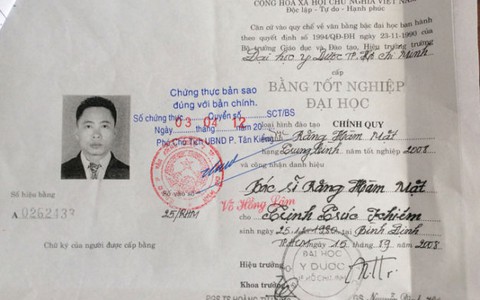 CỘNG HÒA XÃ HỘI CHỦ NGHĨA VIỆT NAM
Độc lập - Tự do - Hạnh phúc
Căn cứ vào quy chế về văn bằng bậc đại học ban hành
theo quyết định số 1994/QĐ-ĐH ngày 23-11-1990 của
Bộ trưởng Giáo dục và Đào tạo, Hiệu trưởng trường
Đại học Y Dược TP. Hồ Chí Minh
cấp
BẰNG TỐT NGHIỆP
ĐẠI HỌC
loại hình đào tạo CHÍNH QUY
Răng Hàm Mặt
hạng Trung bình năm tốt nghiệp 2008
và công nhận danh hiệu
Bác sĩ Răng Hàm Mặt
cho Trịnh Trúc Khiêm
sinh ngày 25 1980 tại Bình Định
ngày 15 2008
Hiệu trưởng
Khoa trưởng
ĐẠI HỌC
Y DƯỢC
TP. HỒ CHÍ MINH
Chứng thực bản sao
đúng với bản chính.
Số chứng thực Quyển số SCT/BS
03 04 12
Ngày tháng năm 20
Phó Chủ Tịch UBND P. Tân Kiểng
Võ Hồng Lâm
Số hiệu bằng
A 0262433
Số vào sổ
25/RHM
Chữ ký của người được cấp bằng